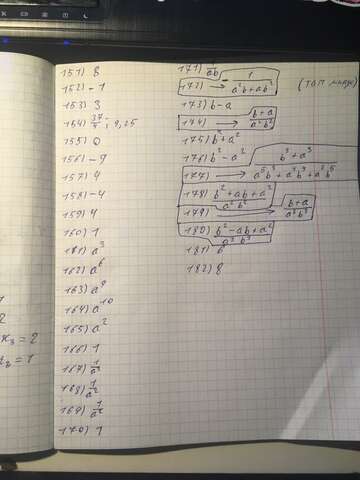 151) 8
152) -1
153) 3
154) 37/4; 9,25
155) 0
156) -9
157) 4
158) -4
159) 4
160) 1
161) a³
162) a⁶
163) a⁹
164) a¹⁰
165) a²
166) 1
167) 1/a²
168) 1/a²
169) 1/a²
170) 1
171) 1/ab
172) → 1/(a²b+ab²) (топ
173) b-a
174) → (b+a)/(a²b²)
175) b²+a²
176) b²-a²
177) → (b³+a³)/(a⁵b³+a⁴b⁴+a³b⁵)
178) (b²+ab+a²)/(a²b²)
179) → (b+a)/(a²b²)
180) (b²-ab+a²)/(a³b³)
181) 6
182) 8
x₃ = 2
= 1